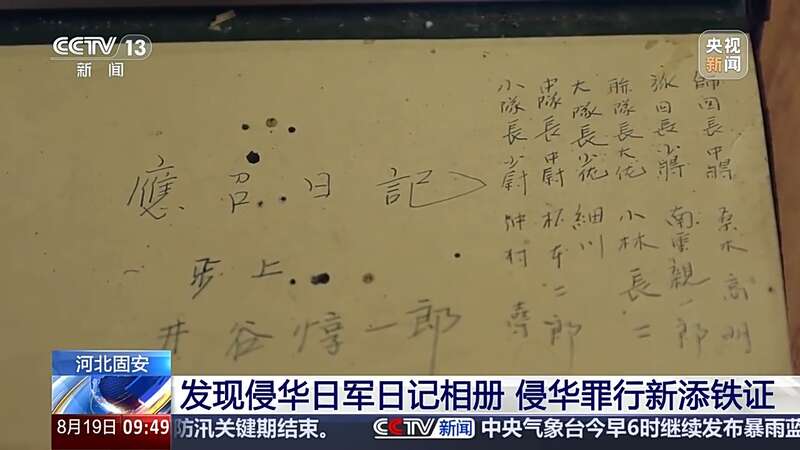 CCTV 13
新闻
央视
新闻
師団長中將
旅団長少將 南雲親一郎
聯隊長大佐 小林長二
大隊長少佐 細川
中隊長中尉 松本二郎
小隊長少尉
應召日記
歩上
井谷惇一郎
河北固安
发现侵华日军日记相册 侵华罪行新添铁证
8月19日 09:49
防汛关键期结束。
CCTV 新闻
中央气象台今早6时继续发布暴雨蓝